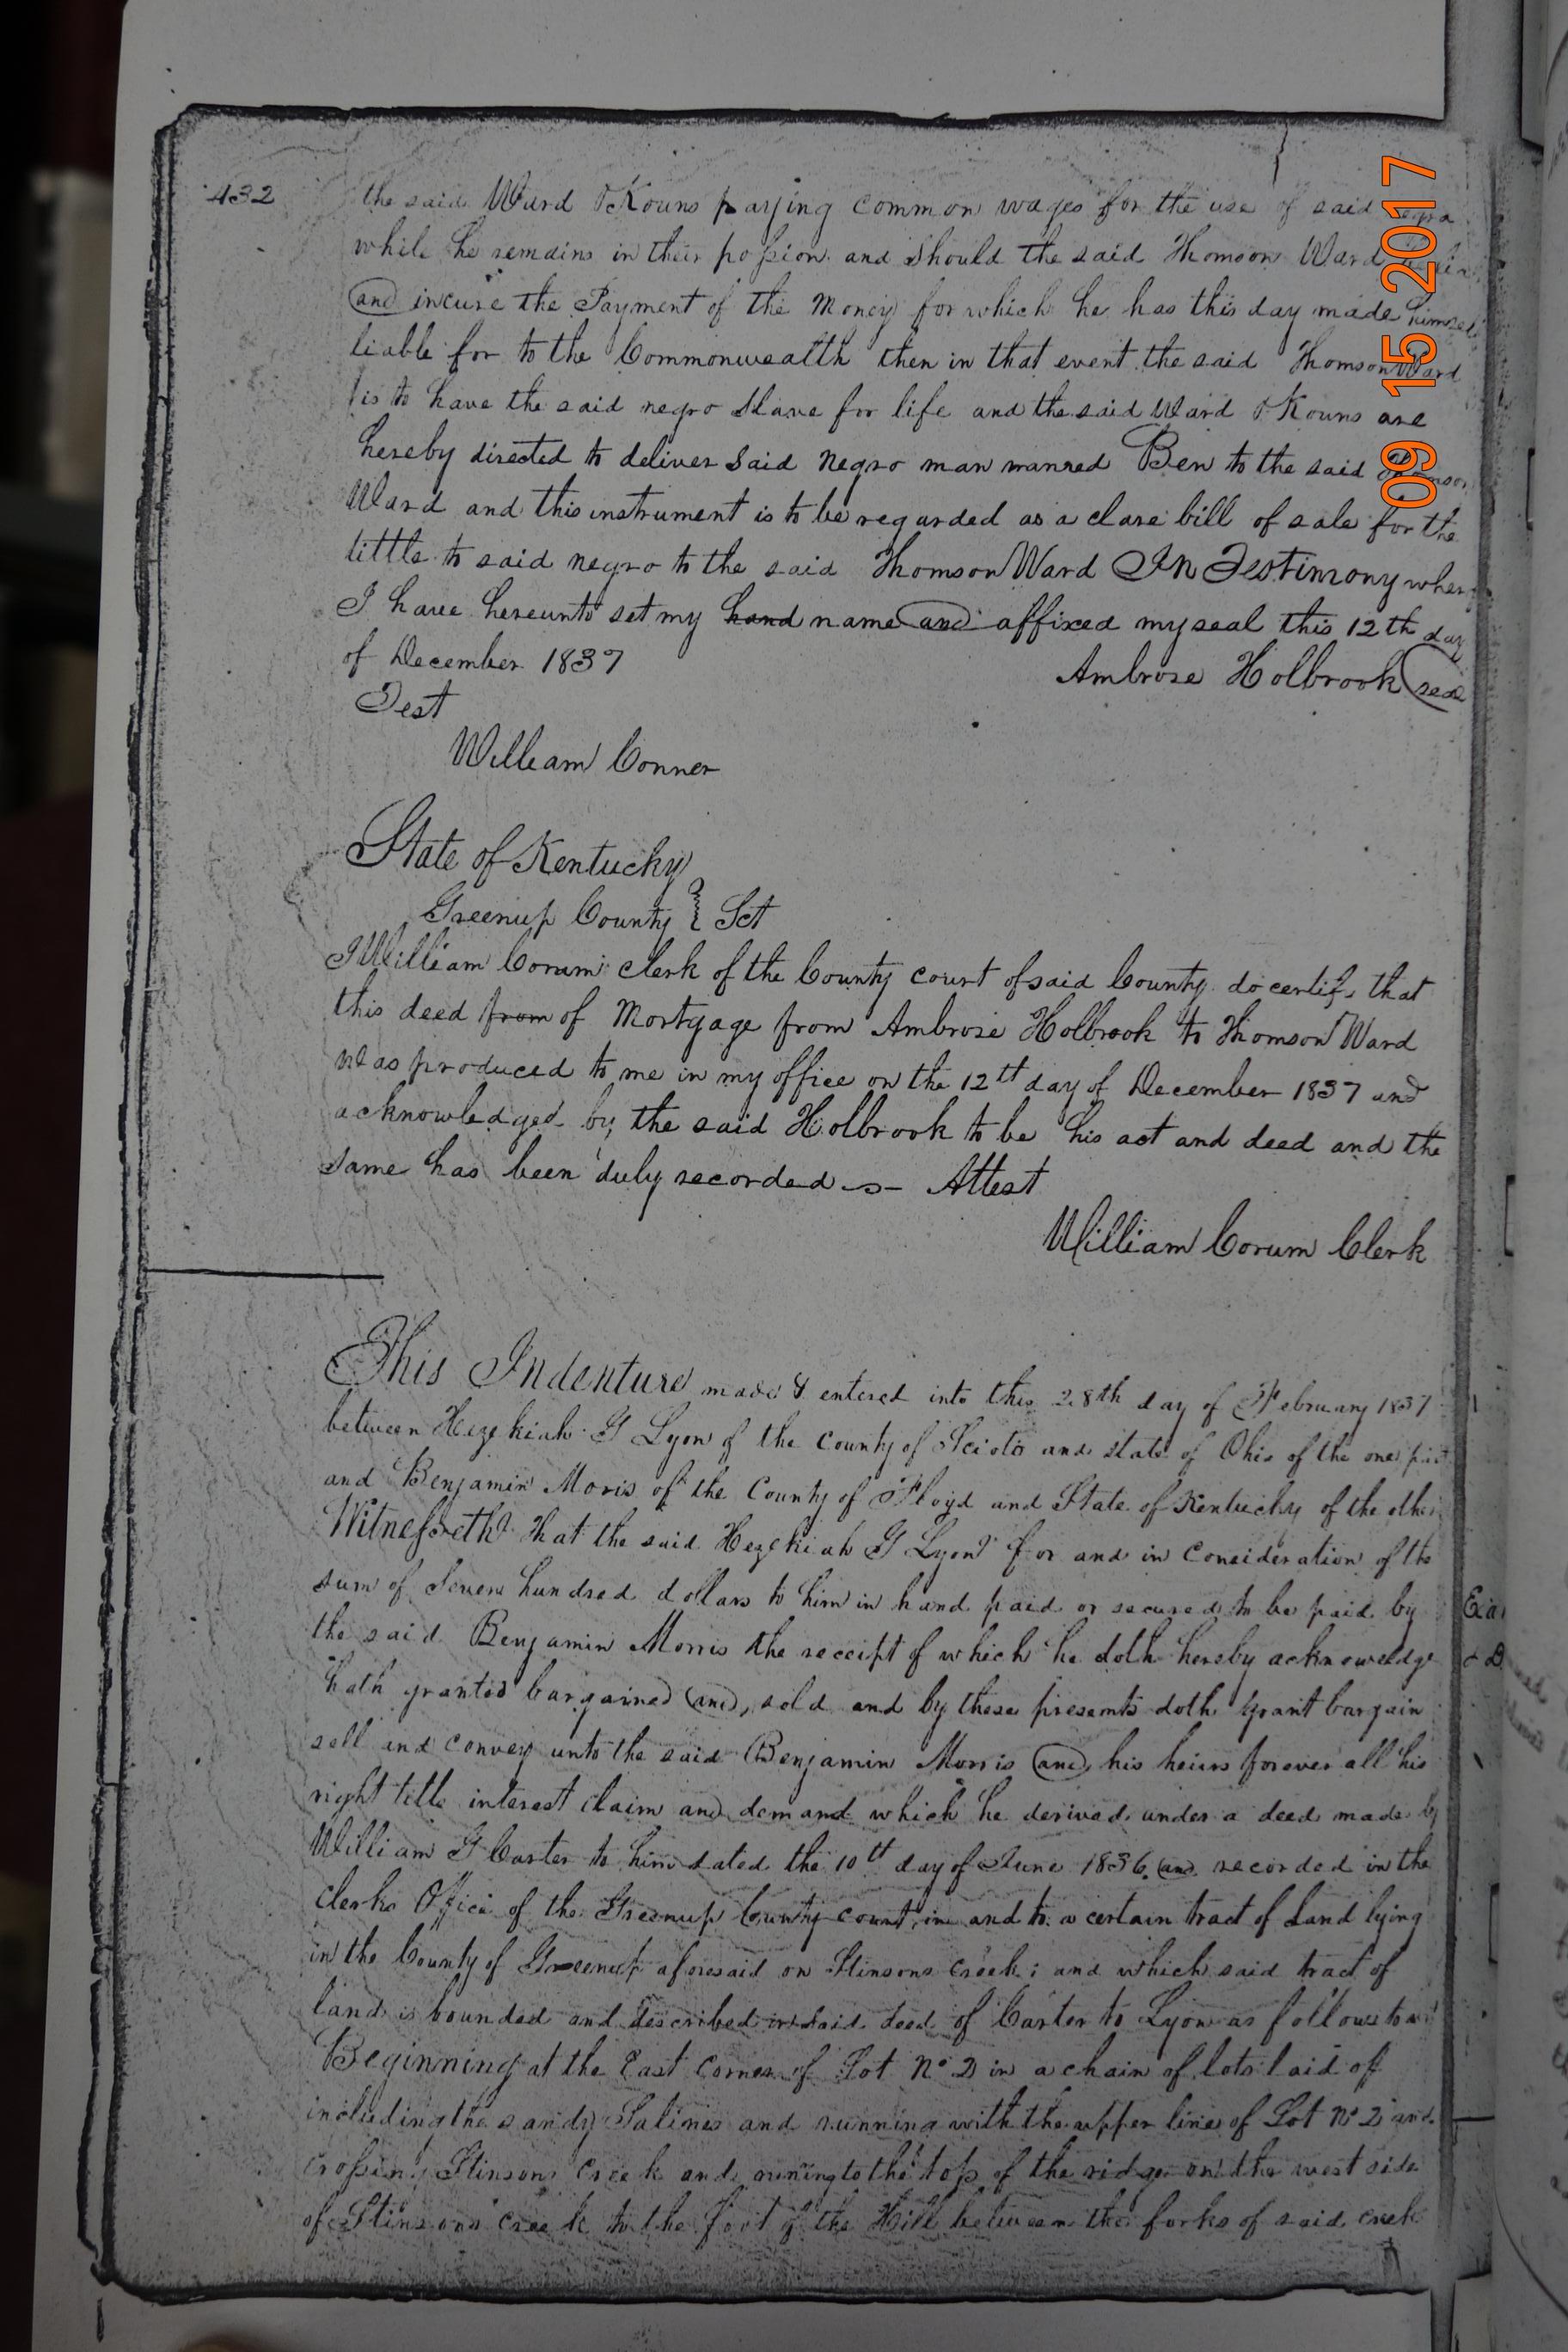 432
the said Ward & Kouns paying common wages for the use of said
while he remains in their possion and should the said Thomson Ward
and incure the Payment of the Money for which he has this day made himself
liable for to the Commonwealth then in that event the said Thomson Ward
is to have the said negro Slave for life and the said Ward & Kouns are
hereby directed to deliver said negro man manred Ben to the said Thomson
Ward and this instrument is to be regarded as a clare bill of sale for the
tittle to said negro to the said Thomson Ward In Testimony where
I have hereunto set my hand name and affixed my seal this 12th day
of December 1837
Ambrose Holbrook seal
Test
William Conner
State of Kentucky
Greenup County } Sct
I William Corum clerk of the County court of said County do certify that
this deed from of Mortgage from Ambrose Holbrook to Thomson Ward
was produced to me in my office on the 12th day of December 1837 and
acknowledged by the said Holbrook to be his act and deed and the
same has been duly recorded — Attest
William Corum Clerk
This Indenture made & entered into this 28th day of February 1837
between Hezekiah G Lyon of the county of Scioto and state of Ohio of the one part
and Benjamin Moris of the County of Floyd and State of Kentucky of the other
Witnesseth that the said Hezekiah G Lyon for and in consideration of the
sum of Seven hundred dollars to him in hand paid or secured to be paid by
the said Benjamin Morris the receipt of which he doth hereby acknoweldge
hath granted bargained and, sold and by these presents doth grant bargain
sell and convey unto the said Benjamin Morris and his heirs forever all his
right title interest claim and demand which he derived under a deed made by
William G Carter to him dated the 10th day of June 1836 and recorded in the
Clerks Office of the Greenup County court, in and to a certain tract of Land lying
in the County of Greenup aforesaid on Stinsons Creek; and which said tract of
land is bounded and described in said deed of Carter to Lyon as follows to wit
Beginning at the East Corner of Lot No 2 in a chain of lots laid of
including the sandy Salines and running with the upper line of Lot No 2 and
crossing Stinsons Creek and runing to the top of the ridge on the west side
of Stinsons Creek to the foot of the Hill between the forks of said creek
09 15 2017